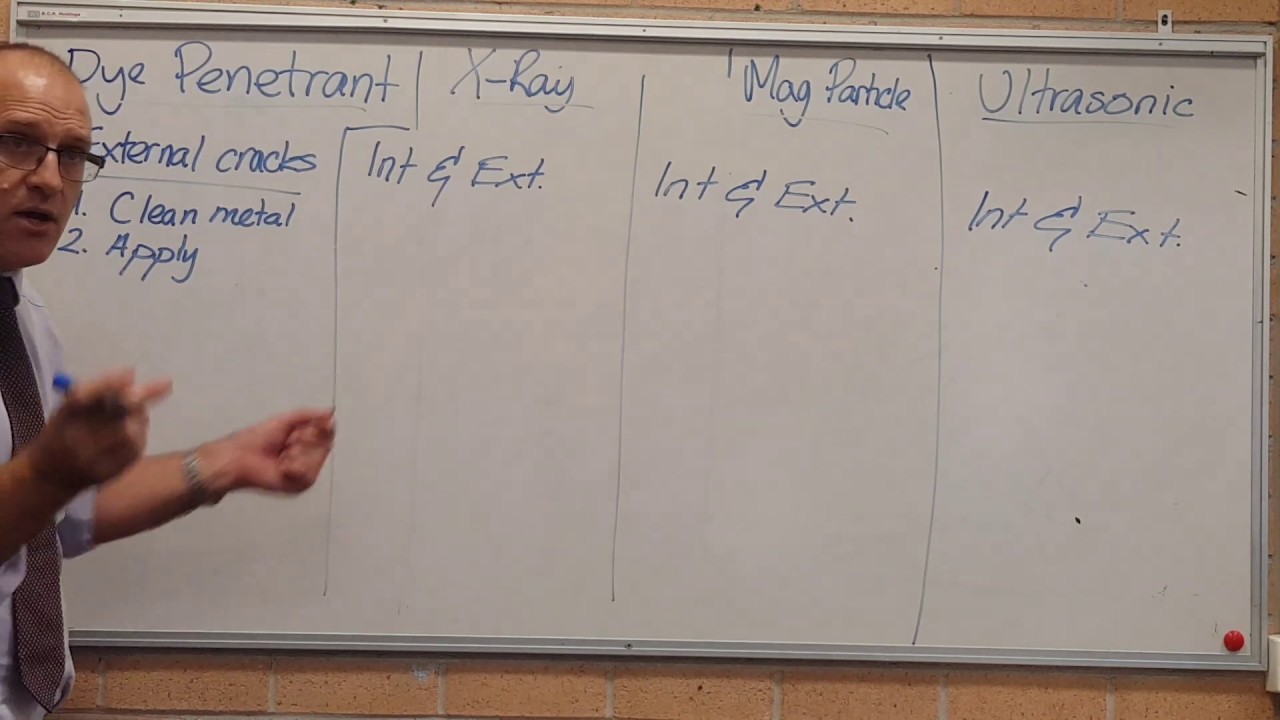 Dye Penetrant
External cracks
1. Clean metal
2. Apply
X-Ray
Int & Ext.
Mag Particle
Int & Ext.
Ultrasonic
Int & Ext.